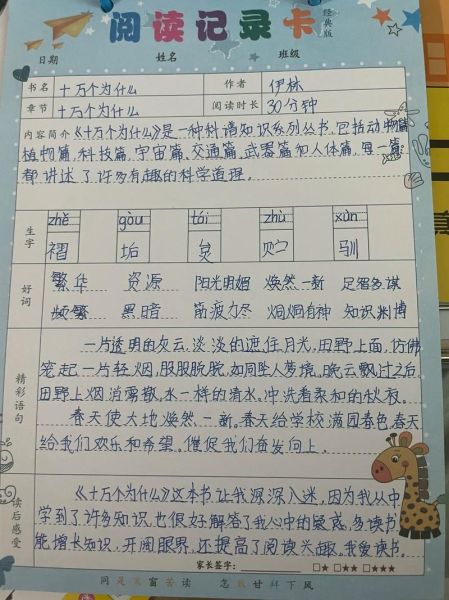 阅读记录卡 经典版
日期 姓名 班级
书名 十万个为什么 作者 伊林
章节 十万个为什么 阅读时长 30分钟
内容简介 《十万个为什么》是一种科谱知识系列丛书,包括动物篇
植物篇,科技篇,宇宙篇,交通篇,武器篇和人体篇,每一篇
都讲述了许多有趣的科学道理.
生字
zhě gòu tái zhù xùn
褶 垢 炱 贮 驯
好词
繁华 资源 阳光明媚 焕然一新 足智多谋
频繁 黑暗 筋疲力尽 炯炯有神 知识渊博
精彩语句
一片透明的灰云,淡淡的遮住月光,田野上面,仿佛
笼起一片轻烟,朦朦胧胧,如同坠人梦境,晚云飘过之后,
田野上烟消雾散,水一样的清水.冲洗着柔和的秋夜.
春天使大地焕然一新.春天给学校满园春色,春天
给我们欢乐和希望.催促我们奋发向上.
读后感受
《十万个为什么》这本书,让我深深入迷,因为我从中
学到了许多知识,也很好解答了我心中的疑惑,多读书
能增长知识,开阔眼界,还提高了阅读兴趣.我爱读书.
家长签字: ☆ ☆☆ ☆☆☆
同是寒窗苦读 怎敢甘拜下风